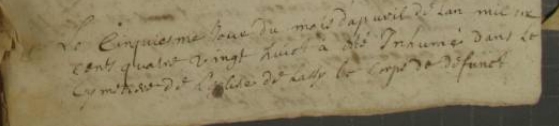 Le Cinquiesme Jour du mois dapuril de lan mil six
cents quatre vingt huict à été Inhumé dans Le
Cymetiere de Leglise de Lassy le Corps de défunct